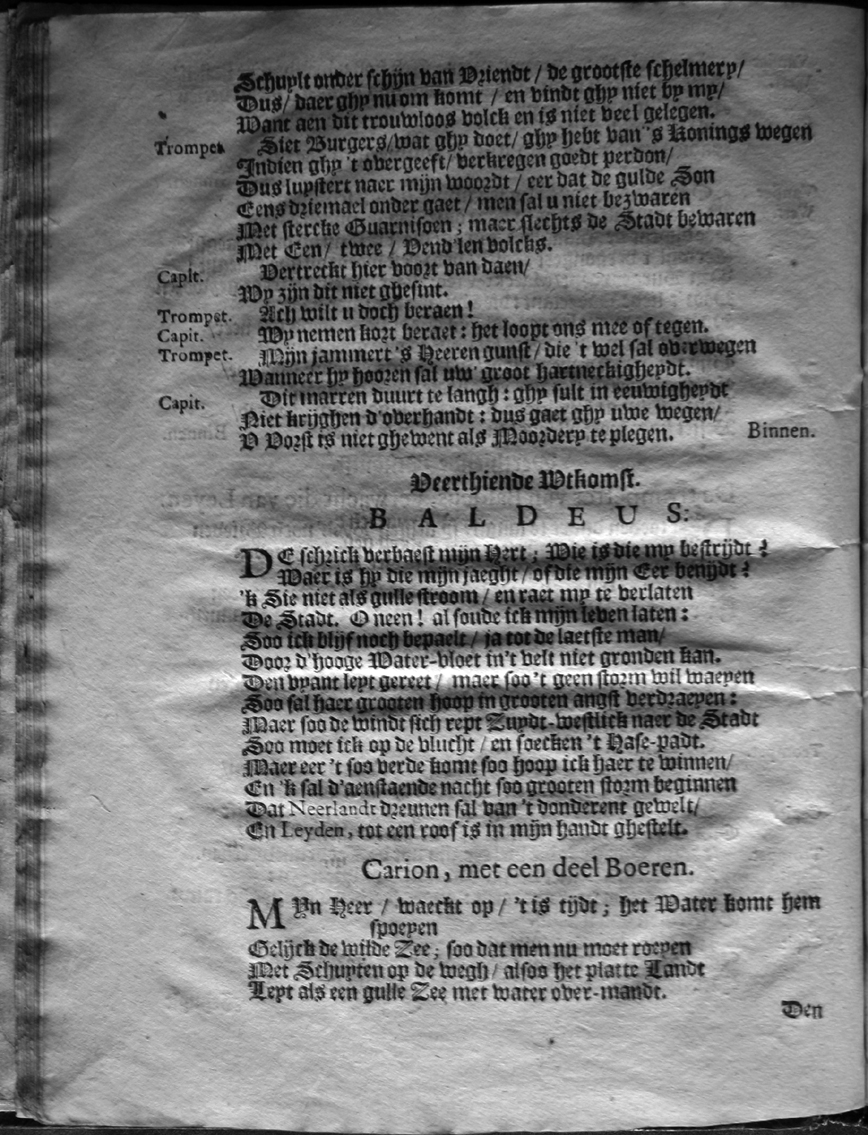 Schuylt onder schijn van Vriendt / de grootste schelmery/
Dus/ daer ghy nu om komt / en vindt ghy niet by my/
Want aen dit trouwloos volck en is niet veel gelegen.
Trompet Siet Burgers/wat ghy doet/ ghy hebt van 's Konings wegen
Indien ghy 't overgeeft/ verkregen goedt perdon/
Dus luystert naer mijn woordt / eer dat de gulde Son
Eens driemael onder gaet / men sal u niet bezwaren
Met stercke Guarnisoen ; maer slechts de Stadt bewaren
Met Een/ twee / Vend'len volcks.
Capit. Vertreckt hier voort van daen/
Wy zijn dit niet ghesint.
Trompet. Ach wilt u doch beraen !
Capit. Wy nemen kort beraet : het loopt ons mee of tegen.
Trompet. Mijn jammert 's Heeren gunst/ die 't wel sal overwegen
Wanneer hy hooren sal uw' groot hartneckigheydt.
Capit. Dit marren duurt te langh : ghy sult in eeuwigheydt
Niet krijghen d'overhandt : dus gaet ghy uwe wegen/
V Vorst is niet ghewent als Moordery te plegen. Binnen.
Veerthiende Wtkomst.
BALDEUS:
DE schrick verbaest mijn Hert ; Wie is die my bestrijdt ?
Waer is hy die mijn jaeght / of die mijn Eer benijdt ?
'k Sie niet als gulle stroom / en raet my te verlaten
De Stadt. O neen ! al soude ick mijn leven laten :
Soo ick blijf noch bepaelt / ja tot de laetste man/
Door d'hooge Water-vloet in't velt niet gronden kan.
Den vyant leyt gereet / maer soo 't geen storm wil waeyen
Soo sal haer grooten hoop in grooten angst verdraeyen :
Maer soo de windt sich rept Zuydt-westlick naer de Stadt
Soo moet ick op de vlucht / en soecken 't Hase-padt.
Maer eer 't soo verde komt soo hoop ick haer te winnen/
En 'k sal d'aenstaende nacht soo grooten storm beginnen
Dat Neerlandt dreunen sal van 't donderent gewelt/
En Leyden, tot een roof is in mijn handt ghestelt.
Carion, met een deel Boeren.
MYn Heer / waeckt op / 't is tijdt ; het Water komt hem
spoeyen
Gelijck de wilde Zee ; soo dat men nu moet roeyen
Met Schuyten op de wegh / alsoo het platte Landt
Leyt als een gulle Zee met water over-mandt.
Den